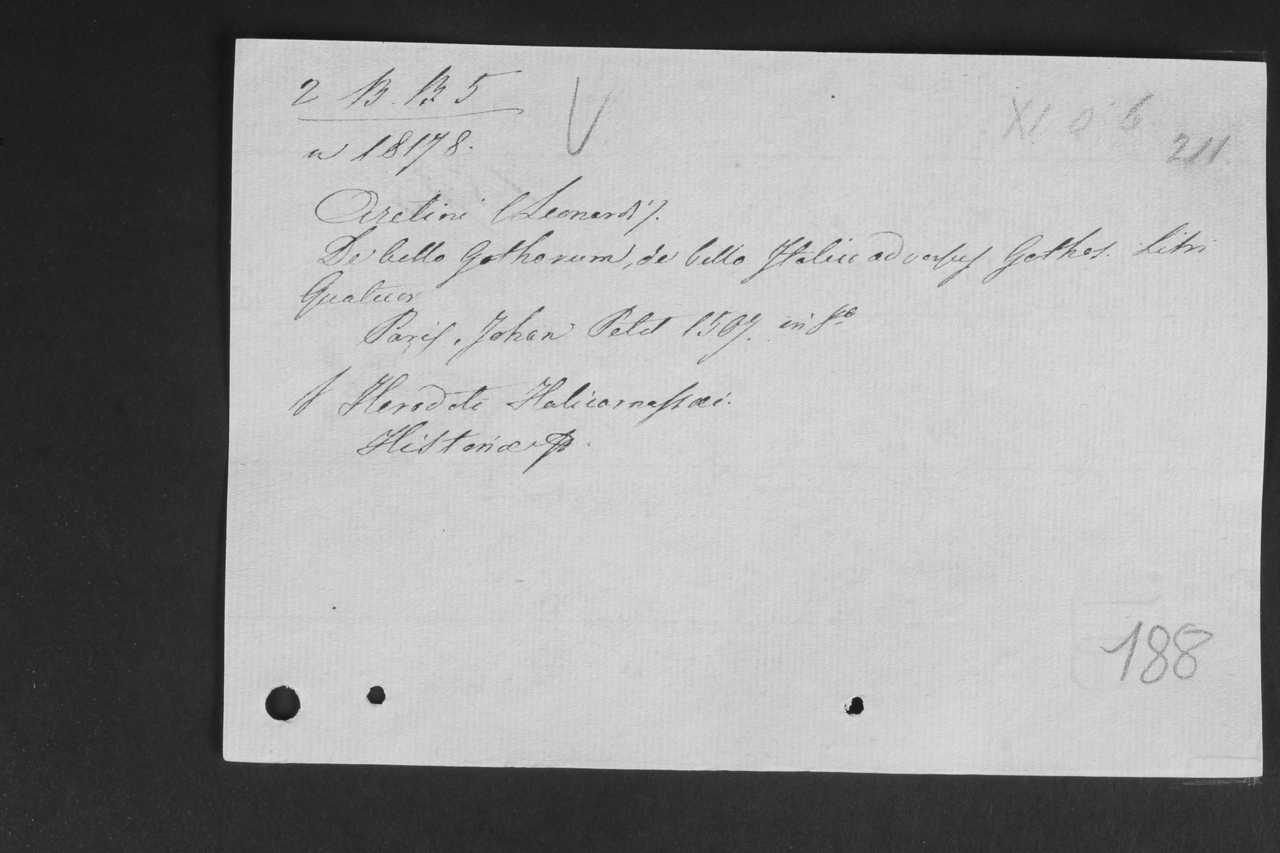 2 B. B. 5
V
XI O 6
211
n 18178.
Aretini (Leonardi).
De bello Gothorum, de bello Italico adversus Gothos. Libri
Quatuor
Paris, Johan Petit 1507. in 8º
Herodoti Halicarnassæi.
Historiæ
188